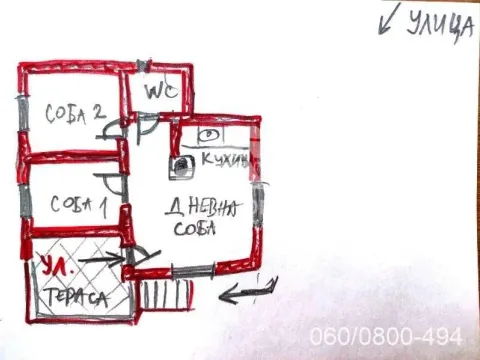 УЛИЦА
WC
СОБА 2
КУХИЊА
СОБА 1
ДНЕВНА
СОБА
УЛ.
ТЕРАСА
060/0800-494